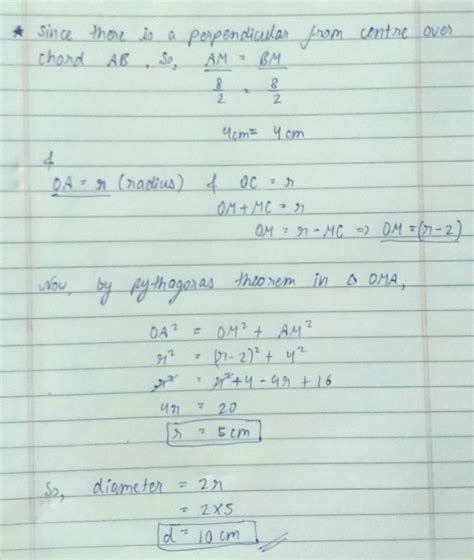 * Since there is a perpendicular from centre over
chord AB, So, AM = BM
8/2 = 8/2
4cm = 4 cm
&
OA = r (radius) & OC = r
OM + MC = r
OM = r - MC ⇒ OM = (r-2)
Now, by pythagoras theorem in Δ OMA,
OA² = OM² + AM²
r² = (r-2)² + 4²
r² = r² + 4 - 4r + 16
4r = 20
r = 5cm
So, diameter = 2r
= 2×5
d = 10 cm